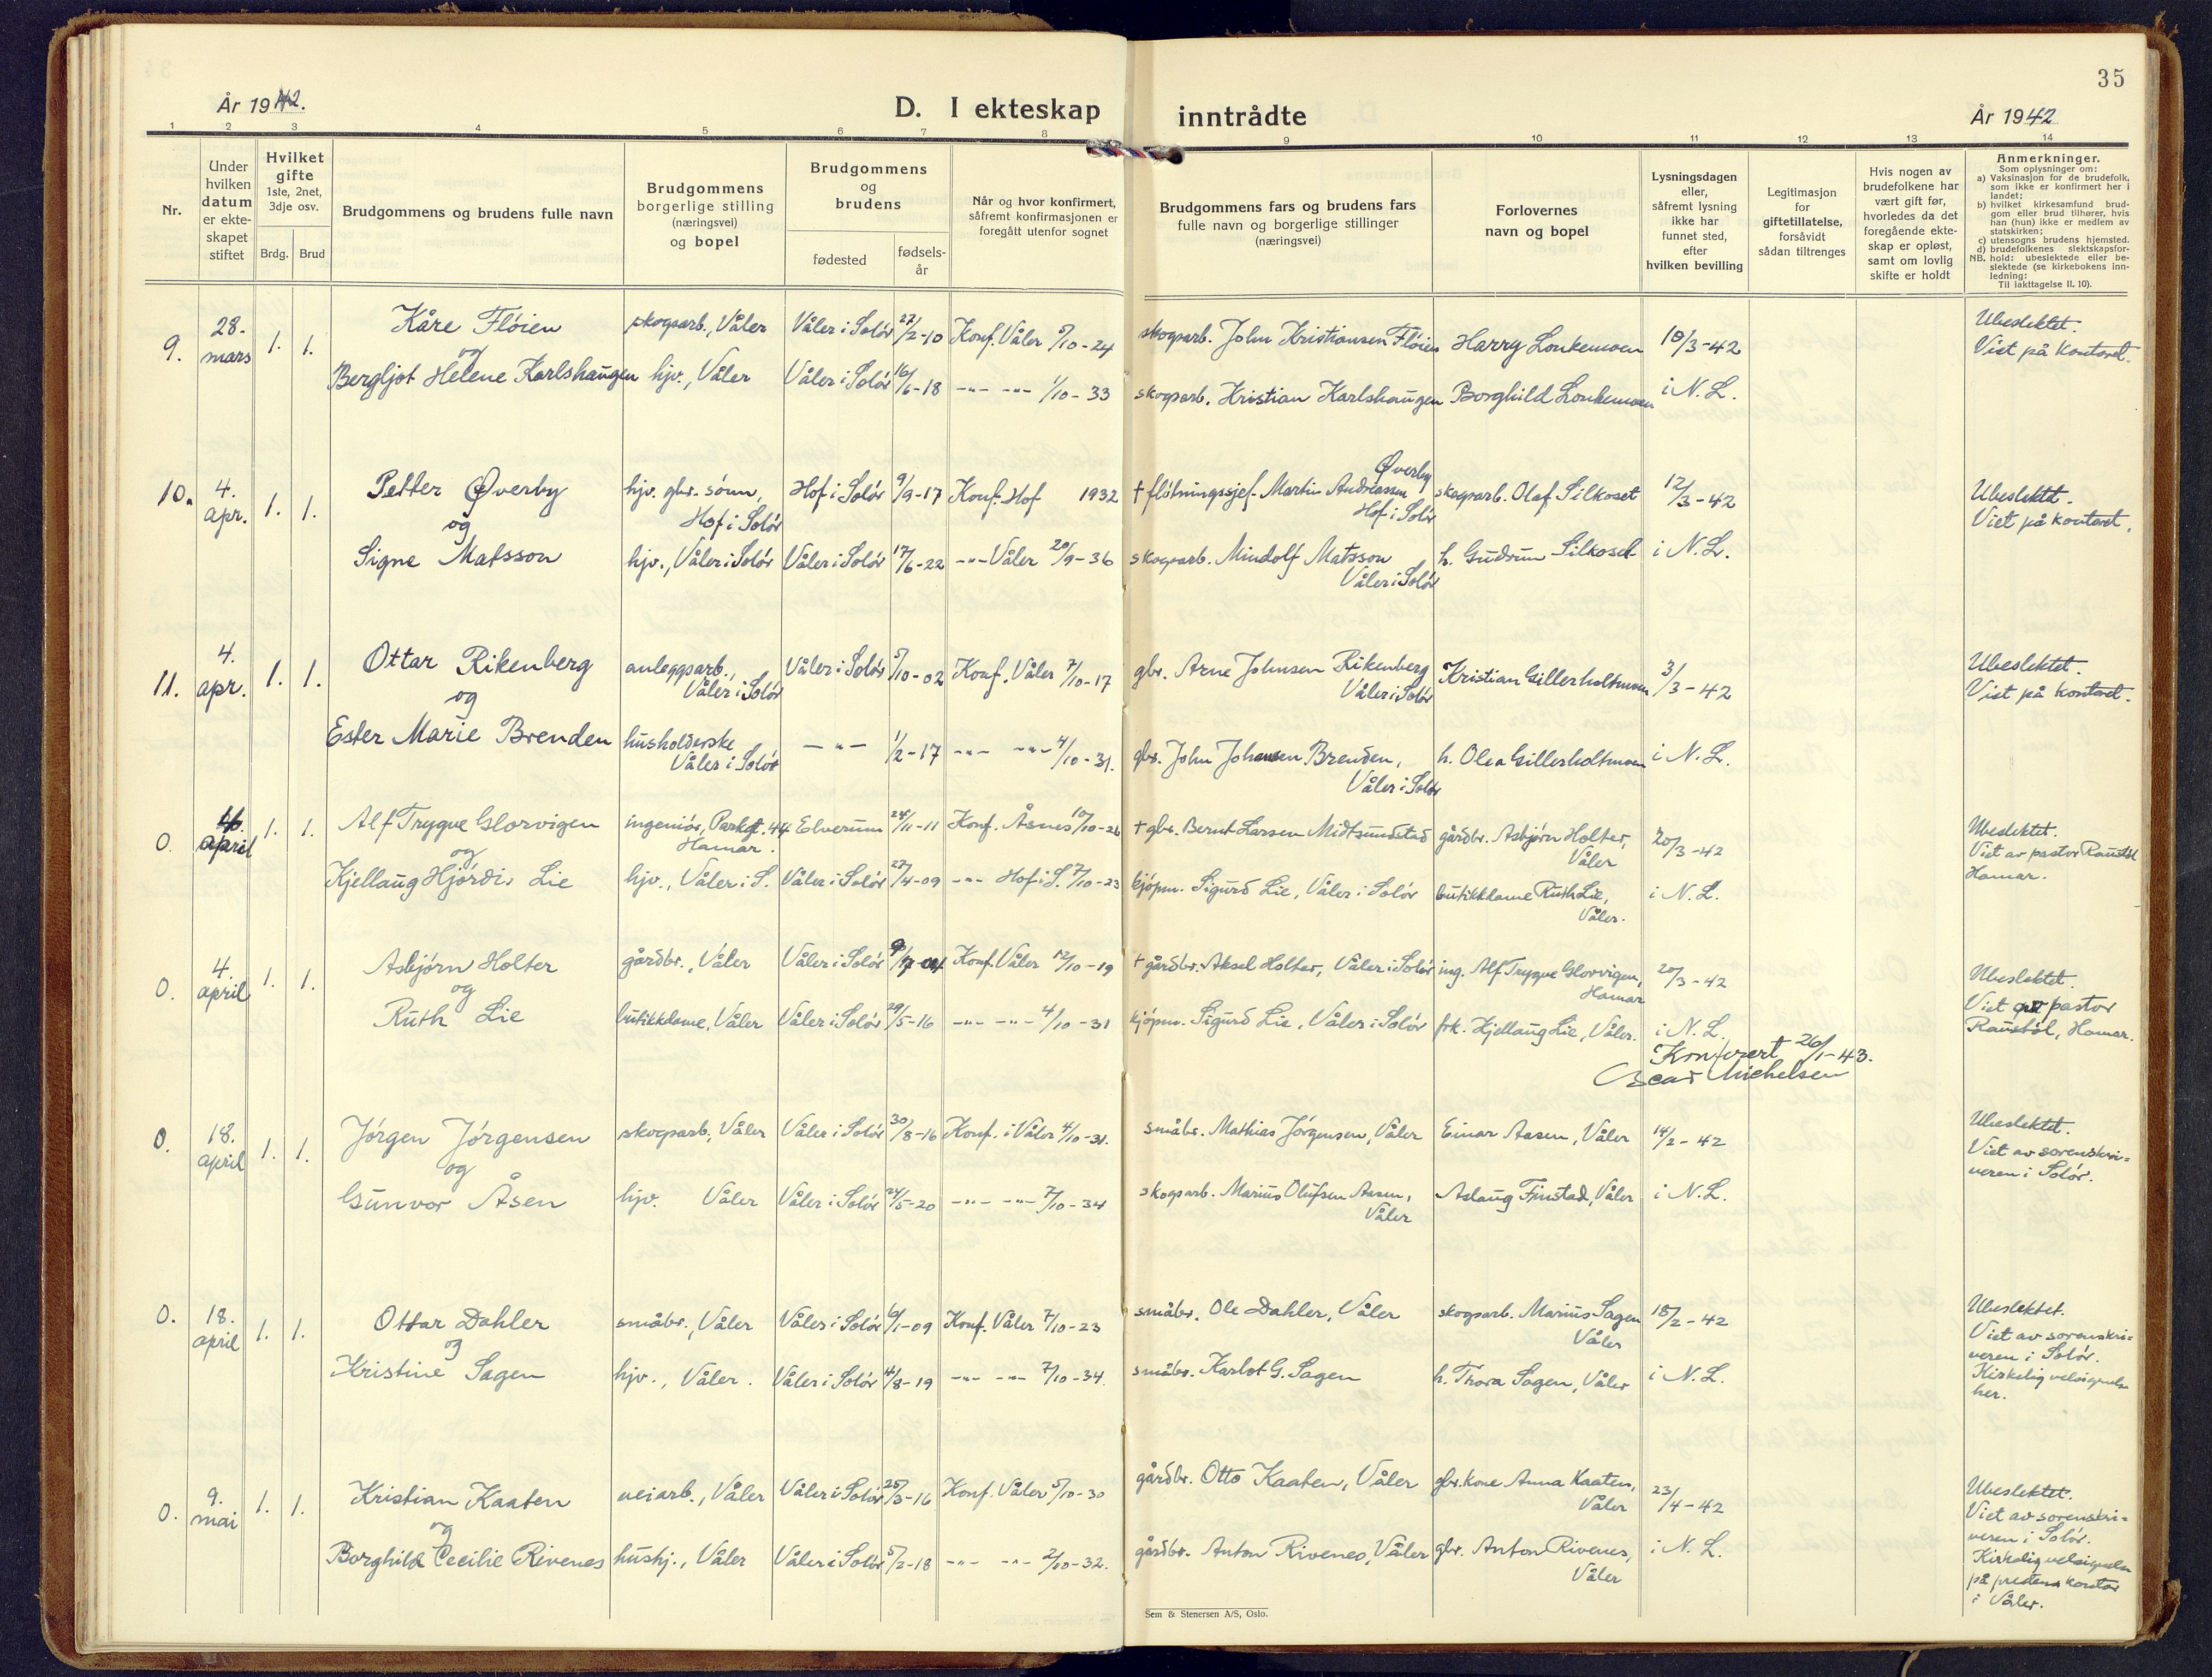 35
År 1942.
D. I ekteskap inntrådte
År 1942
1 2 3 4 5 6 7 8 9 10 11 12 13 14
Nr.
Under
hvilken
datum
er ekte-
skapet
stiftet
Hvilket
gifte
1ste, 2net,
3dje osv.
Brdg. Brud
Brudgommens og brudens fulle navn
Brudgommens
borgerlige stilling
(næringsvei)
og bopel
Brudgommens
og
brudens
fødested
fødsels-
år
Når og hvor konfirmert,
såfremt konfirmasjonen er
foregått utenfor sognet
Brudgommens fars og brudens fars
fulle navn og borgerlige stillinger
(næringsvei)
Forlovernes
navn og bopel
Lysningsdagen
eller,
såfremt lysning
ikke har
funnet sted,
efter
hvilken bevilling
Legitimasjon
for
giftetillatelse,
forsåvidt
sådan tiltrenges
Hvis nogen av
brudefolkene har
vært gift før,
hvorledes da det
foregående ekte-
skap er opløst,
samt om lovlig
skifte er holdt
Anmerkninger.
Som oplysninger om:
a) Vaksinasjon for de brudefolk,
som ikke er konfirmert her i
landet;
b) hvilket kirkesamfund brud-
gom eller brud tilhører, hvis
han (hun) ikke er medlem av
statskirken;
c) utensogns brudens hjemsted.
d) brudefolkenes slektskapsfor-
NB. hold: ubeslektede eller be-
slektede (se kirkebokens inn-
ledning:
Til iakttagelse II. 10).
9. 28. mars 1. 1. Kåre Fløien skogsarb., Våler Våler i Solør 27/2-10 Konf. Våler 5/10-24 skogsarb. John Kristiansen Fløien Harry Lonkemoen 18/3-42 Ubeslektet.
Viet på kontoret.
og
Bergljot Helene Karlshaugen hjv., Våler Våler i Solør 16/6-18 -"- -"- 1/10-33 skogsarb. Kristian Karlshaugen Borghild Lonkemoen i N. L.
10. 4. apr. 1. 1. Petter Øverby hjv. gbr. sønn, Hof i Solør Hof i Solør 9/9-17 Konf. Hof 1932 † fløtningssjef. Martin Andreassen Øverby Hof i Solør skogsarb. Olaf Silkoset 12/3-42 Ubeslektet.
Viet på kontoret.
og
Signe Matsson hjv., Våler i Solør Våler i Solør 17/6-22 -"- Våler 20/9-36 skogsarb. Mindolf Matsson Våler i Solør h. Gudrun Silkoset i N. L.
11. 4. apr. 1. 1. Ottar Rikenberg anleggsarb., Våler i Solør Våler i Solør 5/10-02 Konf. Våler 7/10-17 gbr. Arne Johnsen Rikenberg Våler i Solør Kristian Gillerholtmoen 3/3-42 Ubeslektet.
Viet på kontoret.
og
Ester Marie Brenden husholderske Våler i Solør -"- 1/2-17 -"- -"- 4/10-31. gbr. John Johansen Brenden, Våler i Solør h. Olea Gillerholtmoen i N. L.
0. april 1. 1. Alf Trygve Glorvigen ingeniør, Parkgt. 44 Hamar. Elverum 24/11-11 Konf. Åsnes 10/10-26 † gbr. Bernt Larsen Midtsundstad gårdbr. Asbjørn Holter, Våler 20/3-42 Ubeslektet.
Viet av pastor Raustøl
Hamar.
og
Kjellaug Hjørdis Lie hjv., Våler i S. Våler i Solør 27/4-09 -"- Hof i S. 7/10-23 kjøpm. Sigurd Lie, Våler i Solør butikkdame Ruth Lie, Våler. i N. L.
0. 4. april 1. 1. Asbjørn Holter gårdbr., Våler Våler i Solør Konf. Våler 12/10-19 † gårdbr. Aksel Holter, Våler i Solør ing. Alf Trygve Glorvigen, Hamar 20/3-42 Ubeslektet.
Viet av pastor
Raustøl, Hamar.
og
Ruth Lie butikkdame, Våler Våler i Solør 29/5-16 -"- -"- 4/10-31 kjøpm. Sigurd Lie, Våler i Solør frk. Kjellaug Lie, Våler. i N. L.
Konferert 26/1-43.
Oscar Michelsen
0. 18. april 1. 1. Jørgen Jørgensen skogsarb., Våler Våler i Solør 30/8-16 Konf. i Våler 4/10-31. småbr. Mathias Jørgensen, Våler Einar Aasen, Våler 14/2-42 Ubeslektet.
Viet av sorenskri-
veren i Solør.
og
Gunvor Åsen hjv. Våler Våler i Solør 24/5-20 -"- -"- 7/10-34 skogsarb. Marius Olufsen Aasen, Våler Aslaug Finstad, Våler i N. L.
0. 18. april 1. 1. Ottar Dahler småbr., Våler Våler i Solør 6/1-09 Konf. Våler 7/10-23 småbr. Ole Dahler, Våler skogsarb. Marius Sagen Våler 18/2-42 Ubeslektet.
Viet av sorenskri-
veren i Solør.
Kirkelig velsignelse
her.
og
Kristine Sagen hjv., Våler. Våler i Solør 4/8-19 -"- -"- 7/10-34. småbr. Karlot G. Sagen h. Thora Sagen, Våler i N. L.
0. 9. mai 1. 1. Kristian Kaaten veiarb., Våler Våler i Solør 25/5-16 Konf. Våler 5/10-30 gårdbr. Otto Kaaten, Våler gbr. kone Anna Kaaten, Våler 23/4-42 Ubeslektet.
Viet av sorenskri-
veren i Solør.
Kirkelig velsignelse
på prestens kontor
i Våler.
og
Borghild Cecilie Rivenes hushj., Våler Våler i Solør 5/2-18 -"- -"- 2/10-32. gårdbr. Anton Rivenes, Våler gbr. Anton Rivenes, Våler i N. L.
Sem & Stenersen A/S, Oslo.